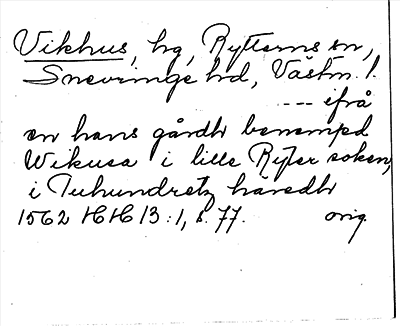 Vikhus, hg, Rytterns sn,
Snevringe hd, Västm. l.
--- ifrå
en hans gårdh benempd
Wikusa i lille Rytter soken,
i Tuhundretz häredh
1562 HH 13:1, s. 77. orig.